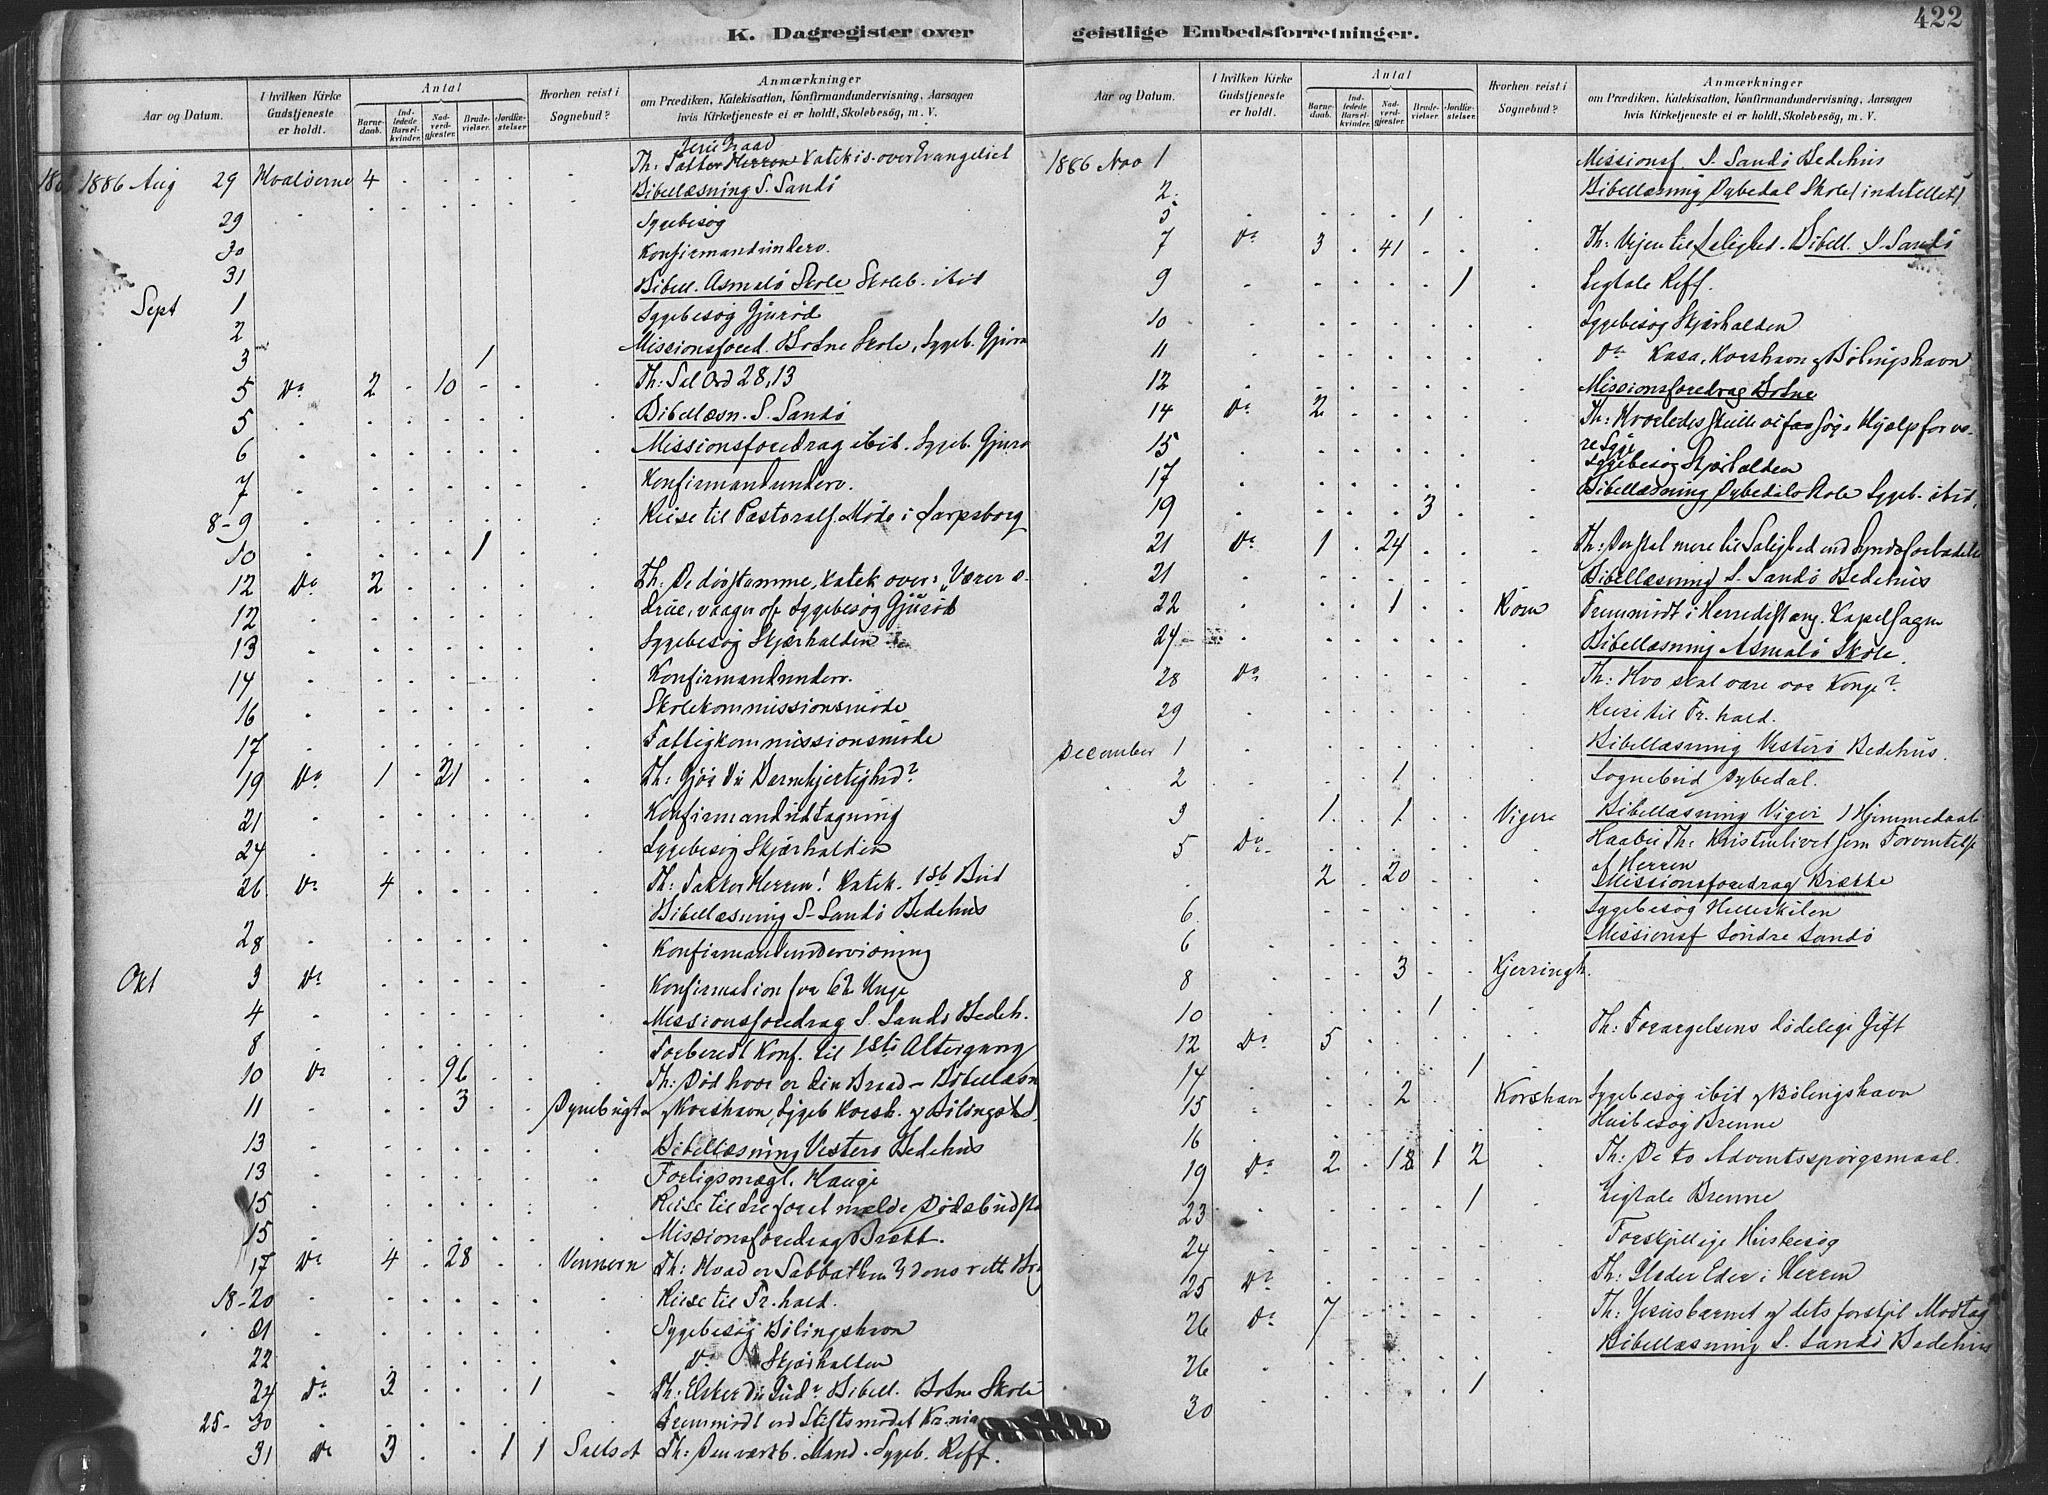 422
K. Dagregister over geistlige Embedsforretninger.
Aar og Datum. I hvilken Kirke Gudstjeneste er holdt. Antal Barnedaab. Indledede Barselkvinder. Nadverdgjester. Brudevielser. Jordfæstelser Hvorhen reist i Sognebud? Anmærkninger om Prædiken, Katekisation, Konfirmandundervisning, Aarsagen hvis Kirketjeneste ei er holdt, Skolebesøg, m. V.
1886 Aug 29 Hvaløerne 4 Th: Takker Herren Katekis. over Evangeliet
29 Bibellæsning S. Sandö
30 Sygebesøg
31 Konfirmandunderv.
Sept 1 Bibell. Asmalö Skole Skoleb. ibid
2 Sygebesøg Gjuröd
3 1 Missionsfored. Botne Skole, Sygeb.
5 Do 2 10 Th: Sal Ord 28,13
5 Bibellæsn. S. Sandö
6 Missionsforedrag ibid. Sygeb.
7 Konfirmandunderv.
8-9 Reise til Pastoralf. Møde i Sarpsborg
10 1
12 Do 2 Th: De døvstumme, Katek over: Værer æ-
12 drue, vaagn ofr Sygebesøg Gjuröd
13 Sygebesøg Skjærhalden
14 Konfirmandunderv.
16 Skolekommissionsmöde
17 Fattigkommissionsmöde
19 Do 1 21 Th: Gjör Du Barmhjertighed?
21 Konfirmandudtagning
24 Sygebesøg Skjærhalden
26 Do 4 Th: Takker Herren! Katek. 1ste Bud
Bibellæsning S. Sandö Bedehus
28 Konfirmandundervisning
Okt 3 Do Konfirmation for 62 Unge
4 Missionsforedrag S. Sandö Bedeh.
8 Forberedt Konf. til 1ste Altergang
10 Do 96 Th: Död hvor er din Braad - Bibellæsn
11 3 y Korshavn, Sygeb Korsh. y Bölingsh.
13 Bibellæsning Vesterö Bedehus
13 Forligsmægl. Hauge
15 Reise til
15 Missionsforedrag Brætt.
17 Do 4 28 Th: Hvad er Sabbathen
18-20 Reise til Fr.hald.
21 Sygebesøg Bölingshavn
22 Do Skjærhalden
24 Do 3 1 Th: Elsker Du Gud? Bibell. Botne Skole
25-30 Fremmödt ved Stiftsmödet Kr.nia
31 Do 3 1 1 Th: Den værkb. Mand. Sygeb. Reff.
Aar og Datum. I hvilken Kirke Gudstjeneste er holdt. Antal Barnedaab. Indledede Barselkvinder. Nadverdgjester. Brudevielser. Jordfæstelser. Hvorhen reist i Sognebud? Anmærkninger om Prædiken, Katekisation, Konfirmandundervisning, Aarsagen hvis Kirketjeneste ei er holdt, Skolebesøg, m. V.
1886 Nov 1 Missionsf. S. Sandö Bedehus
2 Bibellæsning Dybedal Skole (indstillet)
5 1
7 Do 3 41 Th: Vejen til Salighed. Bibell. S. Sandö
9 1 Ligtale Reff.
10 Sygebesøg Skjærhalden
11 Do Kasa, Korshavn y Bölingshavn
12 Missionsforedrag Botne
14 Do 2 Th: Hvorledes skulle vi søge Hjælp for vo-
re Syge
15 Sygebesøg Skjærhalden
17 Bibellæsning Dybedalskole Sygeb. ibid.
19 3
21 Do 1 24 Th: Der skal mere til Salighed end Syndsforladelse
21 Bibellæsning S. Sandö Bedehus
22 1 Fremmödt i Herredsting. Kapelsagen
24 Bibellæsning Asmalö Skole.
28 Do Th: Hvo skal være vor Konge?
29 Reise til Fr.hald.
December 1 Bibellæsning Vesterö Bedehus.
2 1 Sognebud Dybedal.
3 1 1 Viger Bibellæsning Viger / Hjemmedaab
5 Do Haabei Th: Kristenlivet som Forventelse
af Herren
2 20 Missionsforedrag Brætte
6 Sygebesøg Helleskilen
6 Missionsf Söndre Sandö
8 3 Kjerringh.
10 1
12 Do 5 Th: Forargelsens dødelige Gift
14 1
15 2 Korshavn Sygebesøg ibid y Bölingshavn
16 Husbesøg Brenne
19 Do 2 18 1 2 Th: De to Adventsspørgsmaal.
23 1 Ligtale Brenne
24 Forskjellige Husbesøg
25 Do Th: Glæder Eder i Herren
26 Do 7 Th: Jesusbarnet y dets forskjel Modtag
26 Bibellæsning S. Sandö Bedehus
30 1